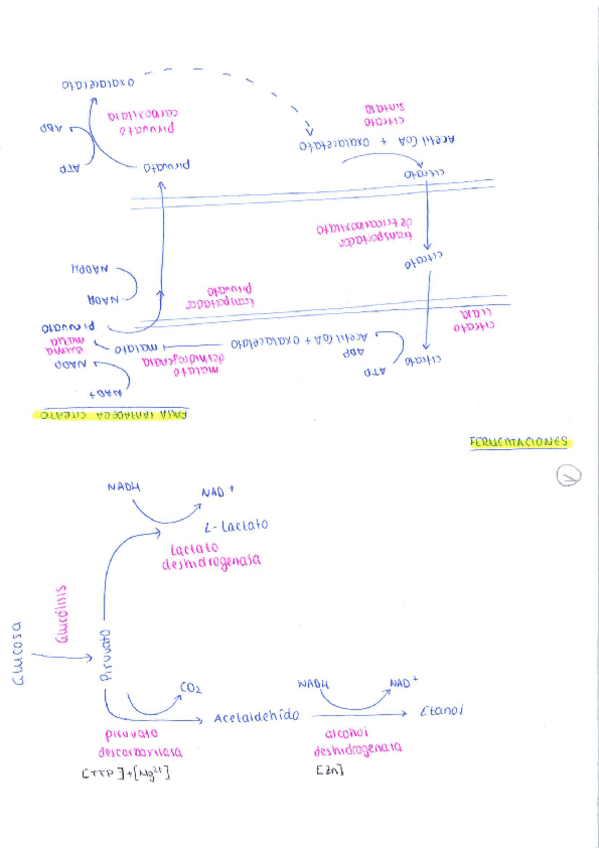 oxalacetato
ADP
ATP
piruvato
carboxilasa
piruvato
citrato
sintasa
Acetil CoA + Oxalacetato
citrato
transportador
de tricarboxilato
citrato
NADPH
NADP
transportador
piruvato
piruvato
malato
NADP
NAD+
malato
deshidrogenasa
Acetil CoA + Oxalacetato
ADP
ATP
citrato
liasa
citrato
FERMENTACIONES
1
NADH
NAD+
L-Lactato
Lactato
deshidrogenasa
Glucosa
Glucólisis
Piruvato
CO2
piruvato
descarboxilasa
[TTP]+[Mg2+]
Acetaldehído
NADH
NAD+
alcohol
deshidrogenasa
[Zn]
Etanol